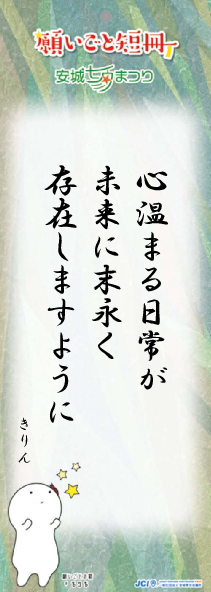 願いごと短冊
安城七夕まつり
心温まる日常が
未来に末永く
存在しますように
きりん
JCI